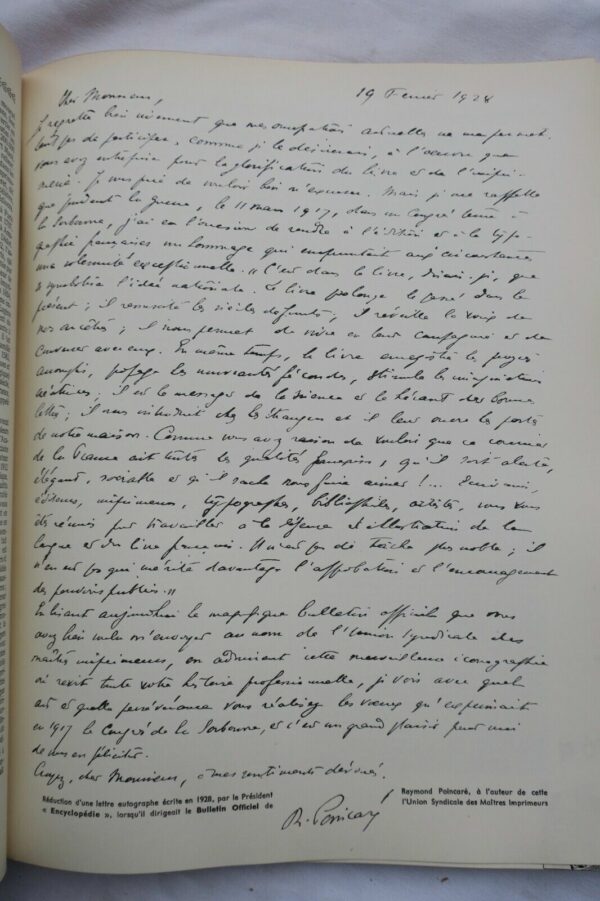 Cher Monsieur, 19 Février 1928
Je regrette bien vivement que mes occupations actuelles ne me permet-
tent pas de participer, comme je le désirerais, à l'œuvre que
vous avez entreprise pour la glorification du livre et de l'impri-
merie. Je vous prie de vouloir bien m'excuser. Mais je me rappelle
que pendant la guerre, le 11 mars 1917, dans un Congrès tenu à
la Sorbonne, j'ai eu l'occasion de rendre à l'édition et à la typo-
graphie françaises un hommage qui empruntait aux circonstances
une solennité exceptionnelle. « C'est dans le livre, disais-je, que
se symbolise l'idée nationale. Le livre prolonge le passé dans le
présent ; il ressuscite les siècles défunts ; il réveille la voix de
nos ancêtres ; il nous permet de vivre en leur compagnie et de
converser avec eux. En même temps, le livre enregistre le progrès
accompli, propage les nouveautés fécondes, stimule les imaginations
créatrices ; il est le messager de la science et le héraut des bonnes
lettres ; il nous introduit chez les étrangers et il leur ouvre les portes
de notre maison. Comme vous avez raison de vouloir que ce courrier
de la France ait toutes les qualités françaises, qu'il soit alerte,
élégant, sociable et qu'il sache nous faire aimer !... Écrivains,
éditeurs, imprimeurs, typographes, bibliophiles, artistes, vous vous
êtes réunis pour travailler à la défense et illustration de la
langue et du livre français. Il n'est pas de tâche plus noble ; il
n'en est pas qui mérite davantage l'approbation et l'encouragement
des pouvoirs publics. »
En lisant aujourd'hui le magnifique bulletin officiel que vous
avez bien voulu m'envoyer au nom de l'Union Syndicale des
maîtres imprimeurs, en admirant cette merveilleuse iconographie
où revit toute votre histoire professionnelle, je vois avec quel
art et quelle persévérance vous réalisez les vœux qu'exprimait
en 1917 le Congrès de la Sorbonne, et c'est un grand plaisir pour moi
de vous en féliciter.
Croyez, cher Monsieur, à mes sentiments dévoués.
R. Poincaré
Réduction d'une lettre autographe écrite en 1928, par le Président Raymond Poincaré, à l'auteur de cette
« Encyclopédie », lorsqu'il dirigeait le Bulletin Officiel de l'Union Syndicale des Maîtres Imprimeurs